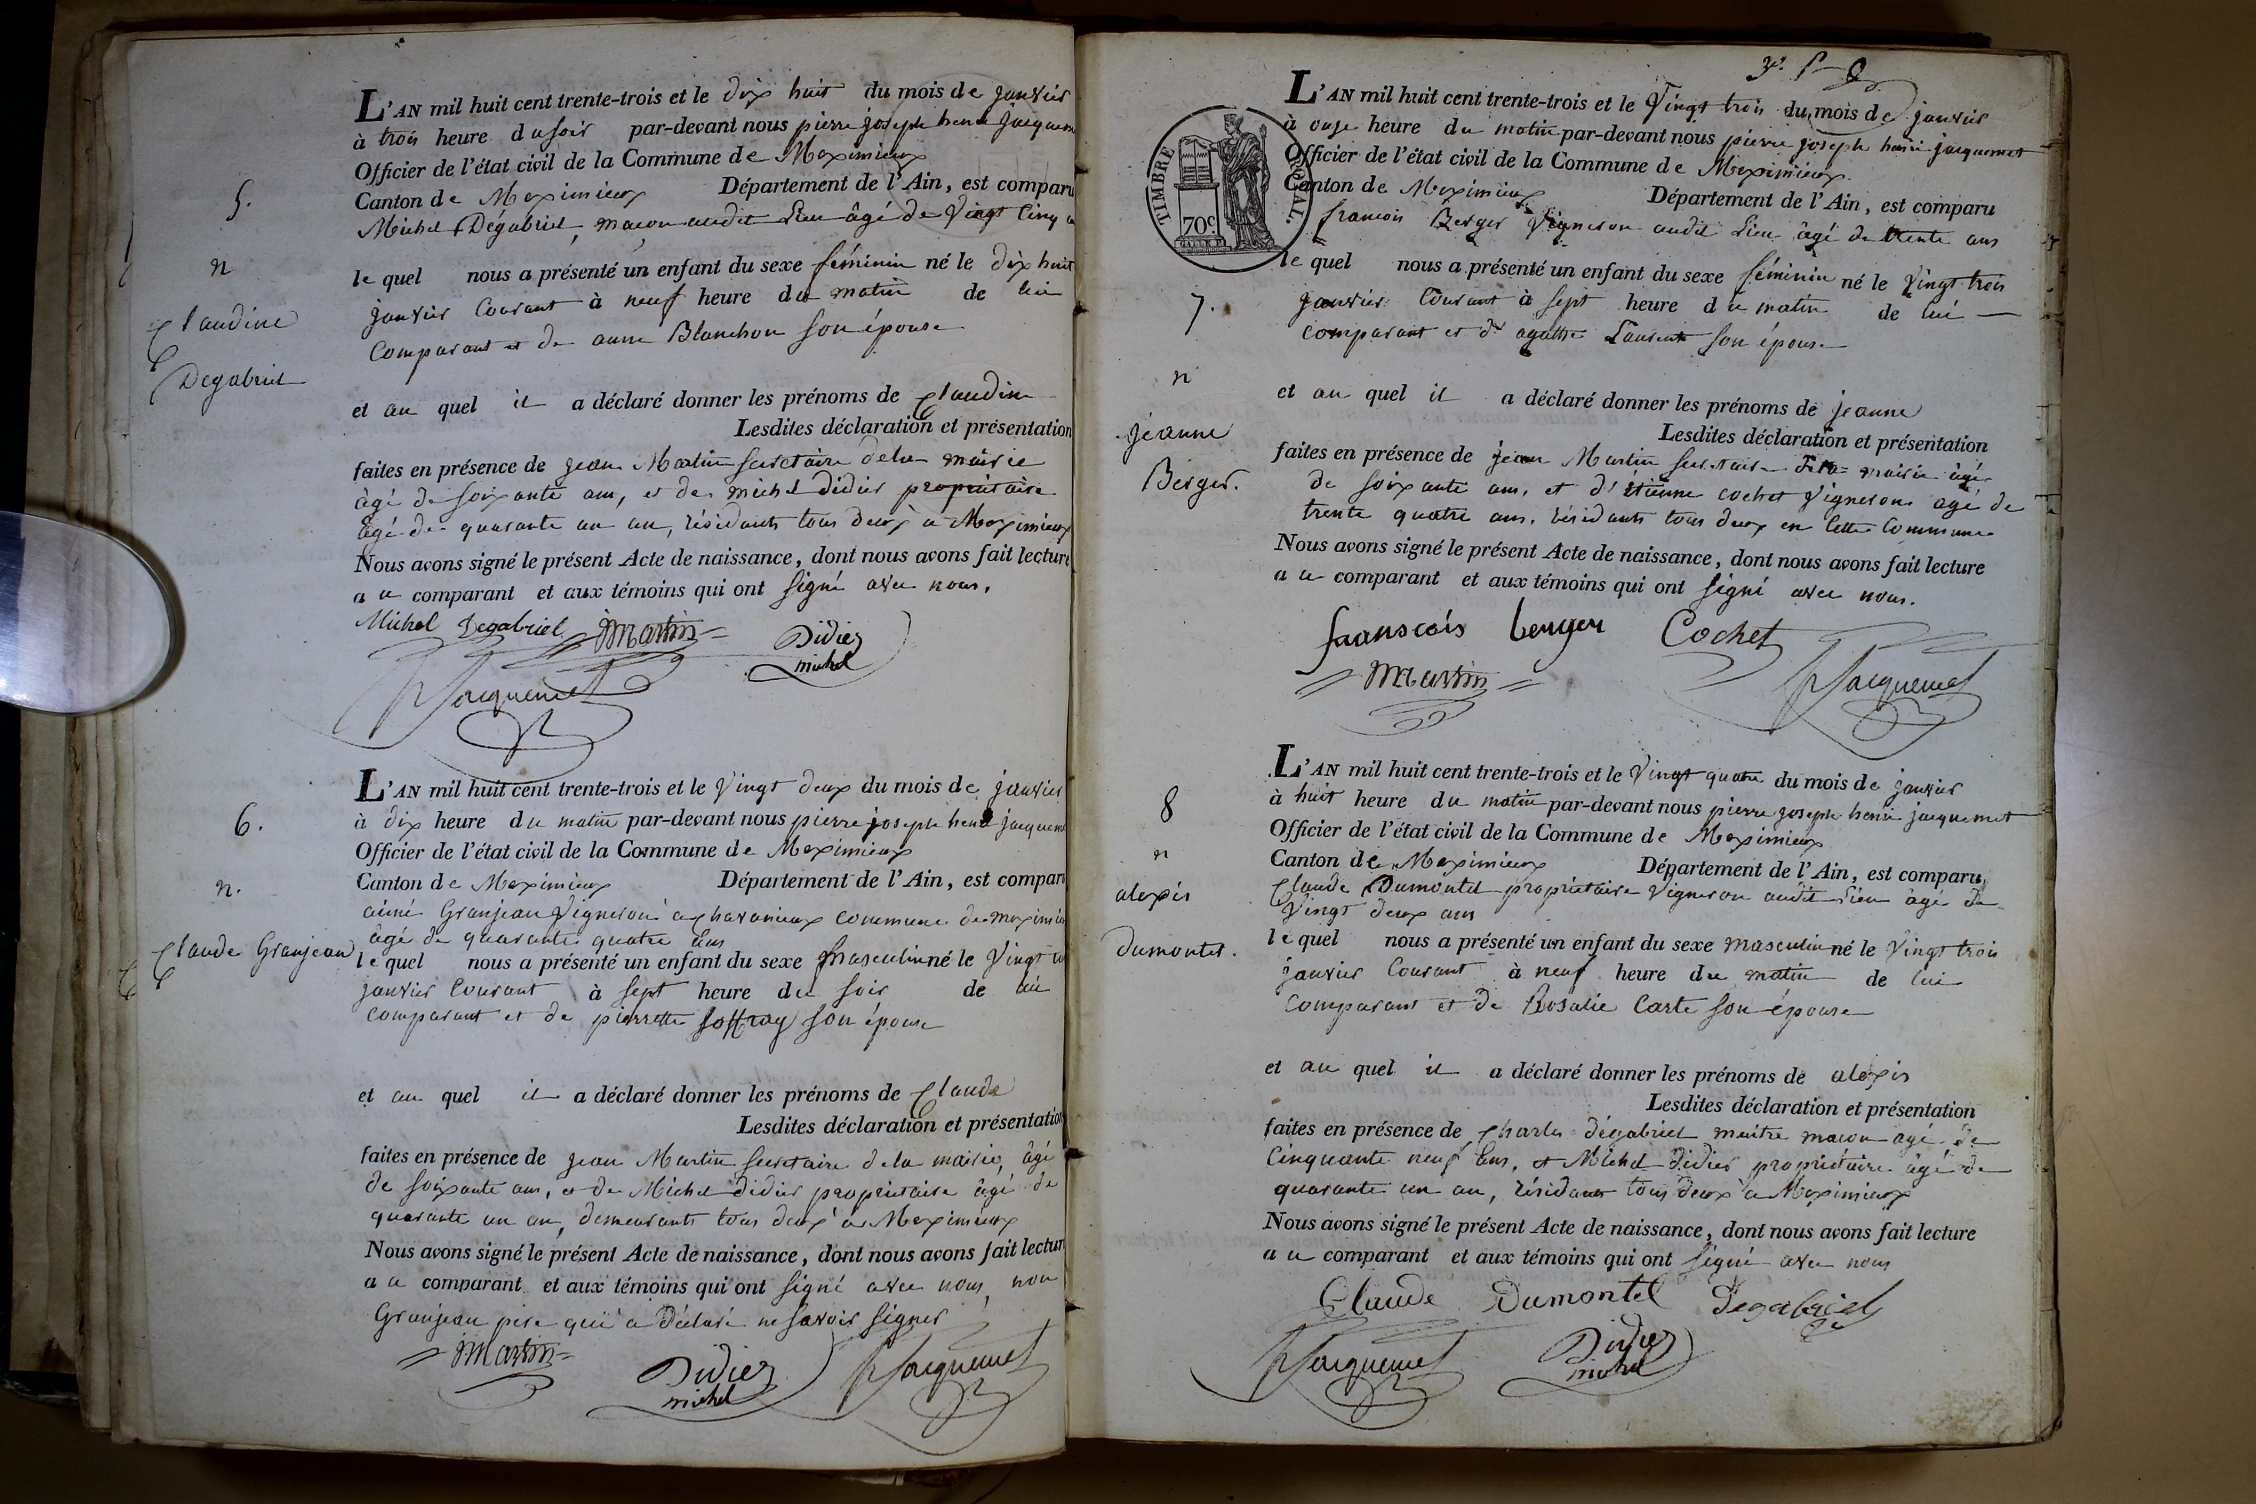 5.
n
Claudine
Degabriel
L'AN mil huit cent trente-trois et le dix huit du mois de janvier
à trois heure du soir par-devant nous pierre joseph henri jacquem
Officier de l'état civil de la Commune de Meximieux
Canton de Meximieux Département de l'Ain, est comparu
Michel Dégabriel, maçon audit Lieu âgé de Vingt Cinq
le quel nous a présenté un enfant du sexe féminin né le dix huit
janvier Courant à neuf heure du matin de lui
Comparant et de anne Blanchon son épouse
et au quel il a déclaré donner les prénoms de Claudine
Lesdites déclaration et présentation
faites en présence de jean Martin secretaire dela mairie
âgé de soixante ans, et de michel didier propriétaire
âgé de quarante un an, résidants tous deux à Meximieux
Nous avons signé le présent Acte de naissance, dont nous avons fait lecture
au comparant et aux témoins qui ont signé avec nous.
Michel Degabriel Martin Didier
michel
Jacquemet
6.
n.
Claude Granjean
L'AN mil huit cent trente-trois et le Vingt deux du mois de janvier
à dix heure du matin par-devant nous pierre joseph henri jacquem
Officier de l'état civil de la Commune de Meximieux
Canton de Meximieux Département de l'Ain, est compar
aimé Granjean Vigneron a Charanieux commune de meximie
âgé de quarante quatre ans
le quel nous a présenté un enfant du sexe masculin né le Vingt
janvier Courant à sept heure du soir de lui
comparant et de pierrette soffray son épouse
et au quel il a déclaré donner les prénoms de Claude
Lesdites déclaration et présentation
faites en présence de jean Martin secretaire dela mairie, âgé
de soixante ans, et de Michel didier propriétaire âgé de
quarante un an, demeurants tous deux à Meximieux
Nous avons signé le présent Acte de naissance, dont nous avons fait lectur
au comparant et aux témoins qui ont signé avec nous, non
Granjean pere qui a Déclaré ne savoir signer
Martin Didier Jacquemet
michel
TIMBRE ROYAL
70c
7.
n
jeanne
Berger.
L'AN mil huit cent trente-trois et le Vingt trois du mois de janvier
à onze heure du matin par-devant nous pierre joseph henri jacquemet
Officier de l'état civil de la Commune de Meximieux.
Canton de Meximieux Département de l'Ain, est comparu
françois Berger Vigneron audit Lieu âgé de trente ans
le quel nous a présenté un enfant du sexe féminin né le Vingt trois
janvier Courant à sept heure du matin de lui
comparant et d' agathe Laurent son épouse
et au quel il a déclaré donner les prénoms de jeanne
Lesdites déclaration et présentation
faites en présence de jean Martin secretaire de la mairie âgé
de soixante ans, et d'étienne cochet Vigneron agé de
trente quatre ans. résidants tous deux en Cette Commune
Nous avons signé le présent Acte de naissance, dont nous avons fait lecture
au comparant et aux témoins qui ont signé avec nous.
franscois berger Cochet
Martin Jacquemet
8
n
alexis
dumontel.
L'AN mil huit cent trente-trois et le Vingt quatre du mois de janvier
à huit heure du matin par-devant nous pierre joseph henri jacquemet
Officier de l'état civil de la Commune de Meximieux
Canton de Meximieux Département de l'Ain, est comparu
Claude Dumontel propriétaire Vigneron audit Lieu âgé de
Vingt deux ans
le quel nous a présenté un enfant du sexe masculin né le Vingt trois
janvier Courant à neuf heure du matin de lui
comparant et de Rosalie Carte son épouse
et au quel il a déclaré donner les prénoms de alexis
Lesdites déclaration et présentation
faites en présence de Charles dégabriel maitre maçon agé de
Cinquante neuf ans, et Michel didier propriétaire âgé de
quarante un an, résidant tous deux à Meximieux
Nous avons signé le présent Acte de naissance, dont nous avons fait lecture
au comparant et aux témoins qui ont signé avec nous
Claude Dumontel Degabriel
Jacquemet Didier
michel